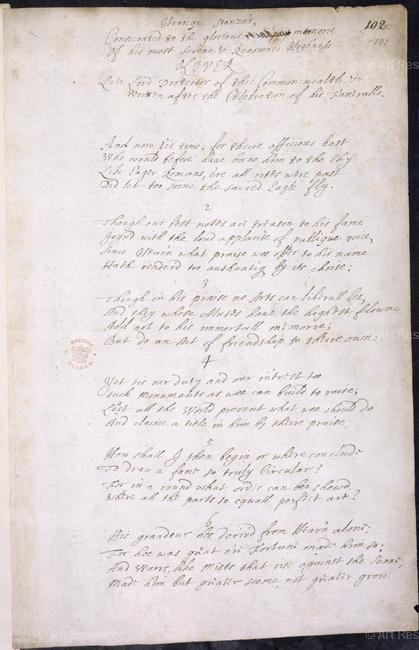 102
Heroique Stanza's,
Consecrated to the glorious memorie
Of his most Serene & Renowned Highness
OLIVER
Late Lord Protector of this Common-wealth, &c
Written after the Celebration of his Funeralls.
And now tis time; for theire officious hast
Who would before have borne him to the sky
Like Eager Romans, ere all rites were past
Did let too soone the sacred Eagle fly.
2
Though our best notes are treason to his fame
Joynd with the loud applause of publique voice,
Since Heav'n what praise wee offer to his name
Hath renderd too authentiq by its choise;
3
Though in his praise no Arts can liberall bee,
And they whose Muses have the highest flowne
Add not to his immortall memorie;
But do an Act of friendship to theire own:
4
Yet tis our duty and our intrest too
Such Monuments as wee can build to raise;
Lest all the World prevent what wee should do
And claime a title in him by theire praise.
5
How shall I then begin or where conclude
To draw a fame so truly Circular?
For in a round what order can bee shewd
Where all the parts so equall perfect are?
6
His grandeur hee deriv'd from Heav'n alone;
For hee was great ere Fortune made him so;
And Wars, like Mists that rise against the Sunne,
Made him but greater seeme, not greater grow.
BRITISH MUSEUM
© Art Resource
© Art Resource